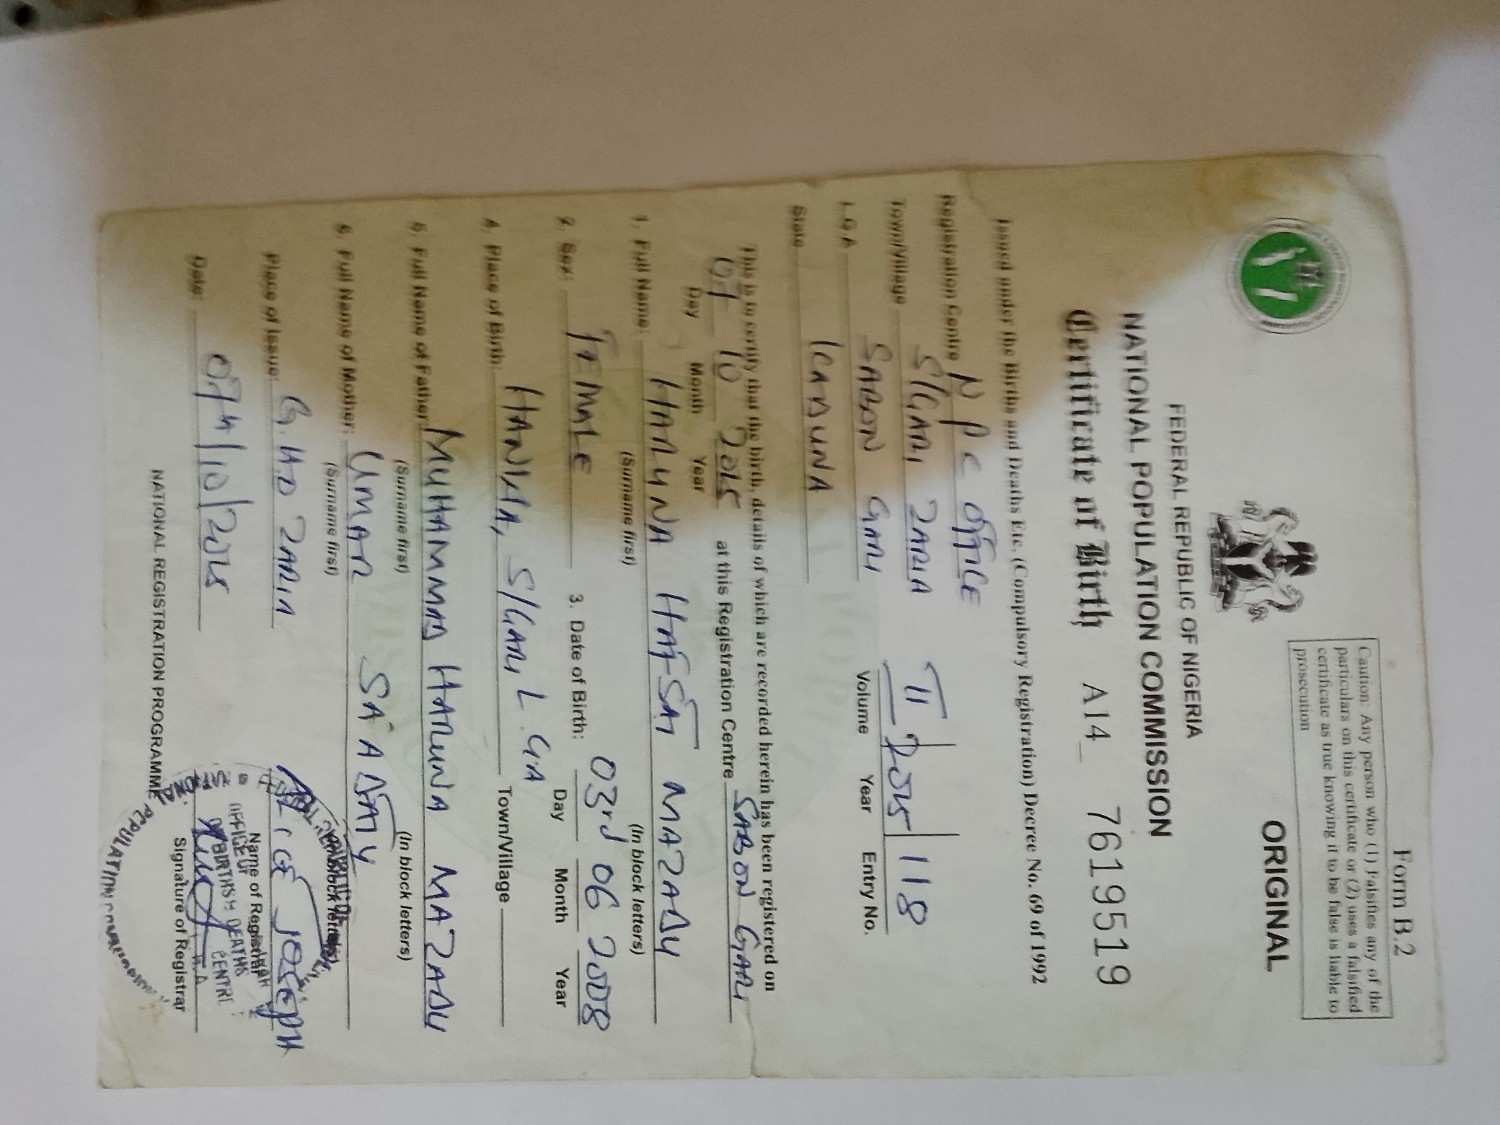 Form B.2
ORIGINAL
Caution: Any person who (1) Falsifies any of the
particulars on this certificate or (2) uses a falsified
certificate as true knowing it to be false is liable to
prosecution
FEDERAL REPUBLIC OF NIGERIA
NATIONAL POPULATION COMMISSION
Certificate of Birth A14_ 7619519
Issued under the Births and Deaths Etc. (Compulsory Registration) Decree No. 69 of 1992
Registration Centre N P C OFFICE
Town/Village S/GARI ZARIA II 2015 118
L.G.A SABON GARI Volume Year Entry No.
State KADUNA
This is to certify that the birth, details of which are recorded herein has been registered on
07 10 2015 at this Registration Centre SABON GARI
Day Month Year
1. Full Name: HARUNA HAFSAT MAZADU
(Surname first) (In block letters)
2. Sex: FEMALE 3. Date of Birth: 03rd 06 2008
Day Month Year
4. Place of Birth: HANWA, S/GARI L.GA Town/Village
5. Full Name of Father: MUHAMMAD HARUNA MAZADU
(Surname first) (In block letters)
6. Full Name of Mother: UMAR SA'ADATU
(Surname first) (In block letters)
Place of Issue: G.H.D ZARIA JOSEPH
Name of Registrar
Date: 07th/10/2015
Signature of Registrar
NATIONAL REGISTRATION PROGRAMME
NATIONAL POPULATION COMMISSION
OFFICE OF
BIRTHS & DEATHS
CENTRE